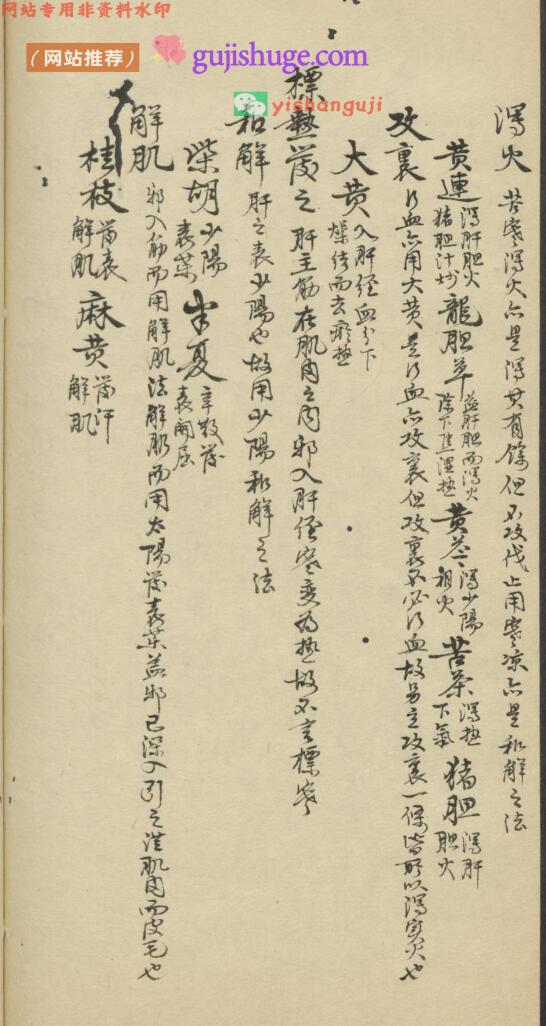 网站专用非资料水印
（网站推荐）
gujishuge.com
yishanguji
瀉火 苦寒瀉火亦是瀉其有餘但不攻伐止用寒凉亦是和解之法
黄連 瀉肝胆火 猪胆汁炒 龍胆草 益肝胆而瀉火 除下焦湿热 黄芩 瀉少陽相火 苦茶 瀉热下氣 猪胆 瀉肝胆火
攻裏 行血亦用大黄是行血亦攻裏但攻裏不必行血故另立攻裏一條皆所以瀉实火也
大黄 入肝经血分下燥结而去瘀热
標熱發之 肝主筋在肌肉之内邪入肝经寒变為热故不言標寒
和解 肝之表少陽也故用少陽和解之法
柴胡 少陽表葯 半夏 辛散發表開
解肌 邪入筋而用解肌法解肌而用太陽發表葯盖邪已深入引之從肌肉而皮毛也
桂枝 發表解肌 麻黄 發汗解肌